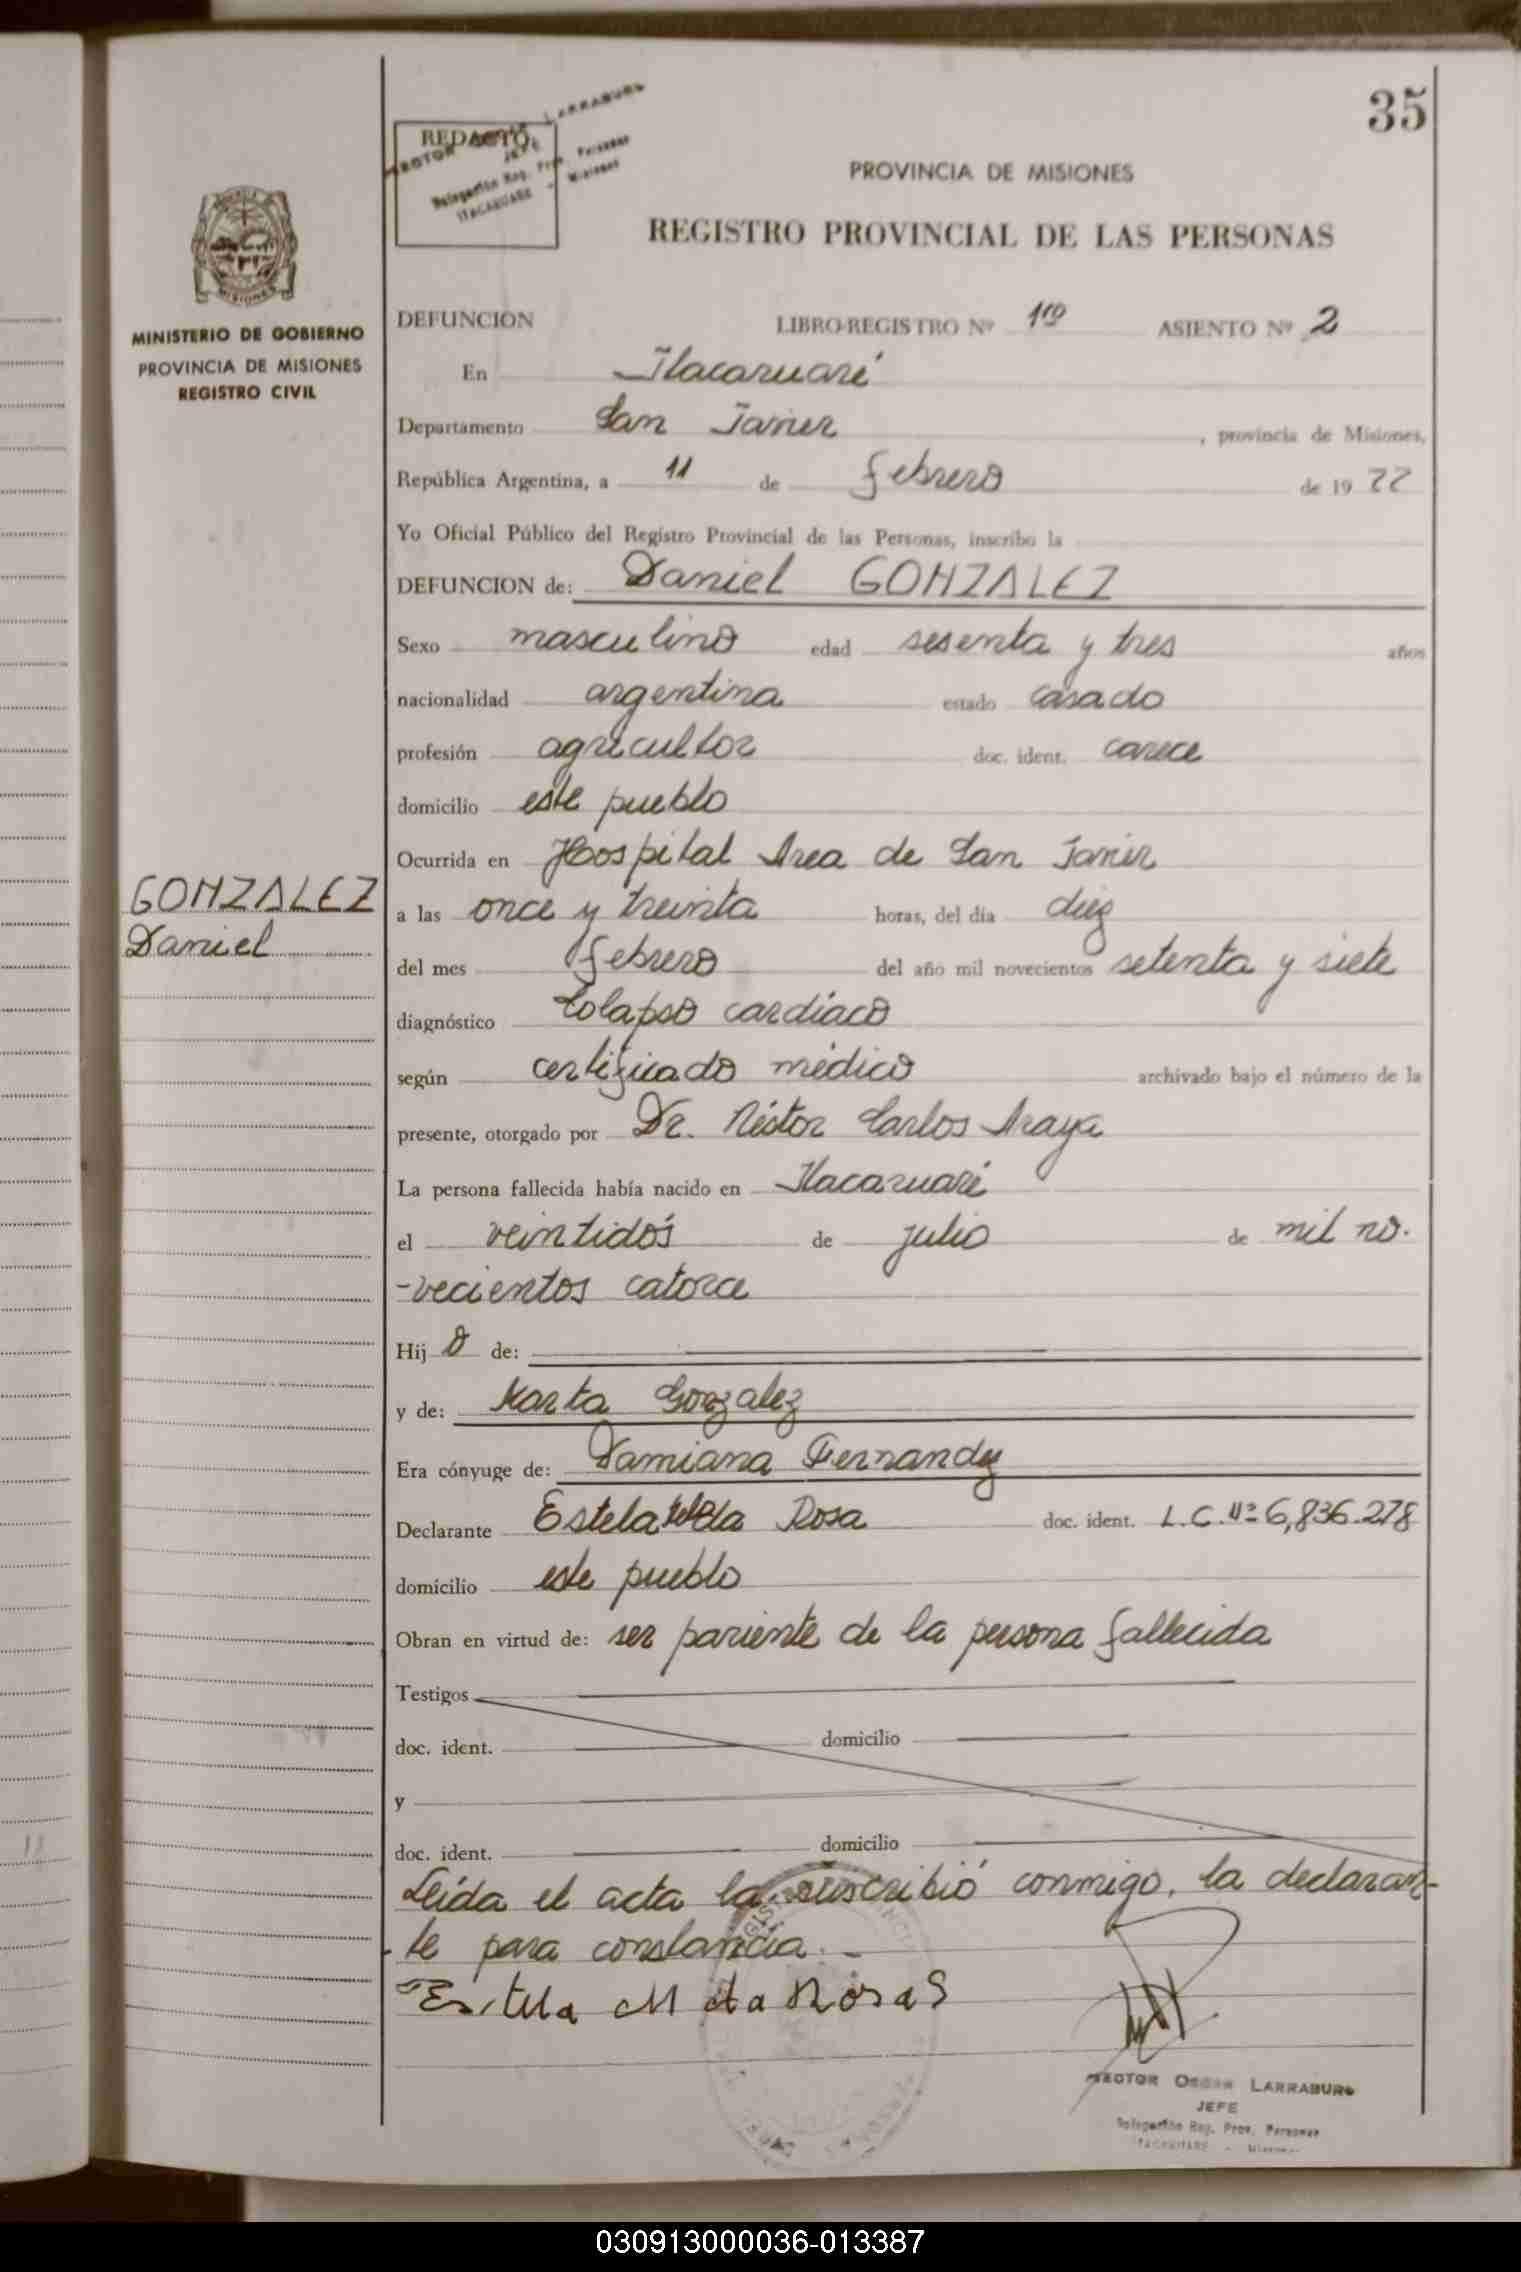 35
REDACTO
HECTOR OSCAR LARRABURU
JEFE
Delegación Reg. Prov. Personas
ITACARUARE - Misiones
PROVINCIA DE MISIONES
REGISTRO PROVINCIAL DE LAS PERSONAS
MISIONES
MINISTERIO DE GOBIERNO
PROVINCIA DE MISIONES
REGISTRO CIVIL
DEFUNCION LIBRO-REGISTRO Nº 1ro ASIENTO Nº 2
En Itacaruaré
Departamento San Javier, provincia de Misiones,
República Argentina, a 11 de febrero de 1977
Yo Oficial Público del Registro Provincial de las Personas, inscribo la
DEFUNCION de: Daniel GONZALEZ
Sexo masculino edad sesenta y tres años
nacionalidad argentina estado casado
profesión agricultor doc. ident. carece
domicilio este pueblo
Ocurrida en Hospital Area de San Javier
GONZALEZ
Daniel
a las once y treinta horas, del día diez
del mes febrero del año mil novecientos setenta y siete
diagnóstico Colapso cardíaco
según certificado médico archivado bajo el número de la
presente, otorgado por Dr. Néstor Carlos Araya
La persona fallecida había nacido en Itacaruaré
el veintidós de julio de mil no-
-vecientos catorce
Hij o de:
y de: Marta Gonzalez
Era cónyuge de: Damiana Fernandez
Declarante Estela Rosa doc. ident. L.C. Nº 6,836.278
domicilio este pueblo
Obran en virtud de: ser pariente de la persona fallecida
Testigos
doc. ident. domicilio
y
doc. ident. domicilio
Leída el acta la suscribió conmigo, la declaran-
-te para constancia.-
Estela M da Rosa
HECTOR OSCAR LARRABURU
JEFE
Delegación Reg. Prov. Personas
ITACARUARE - Misiones
030913000036-013387